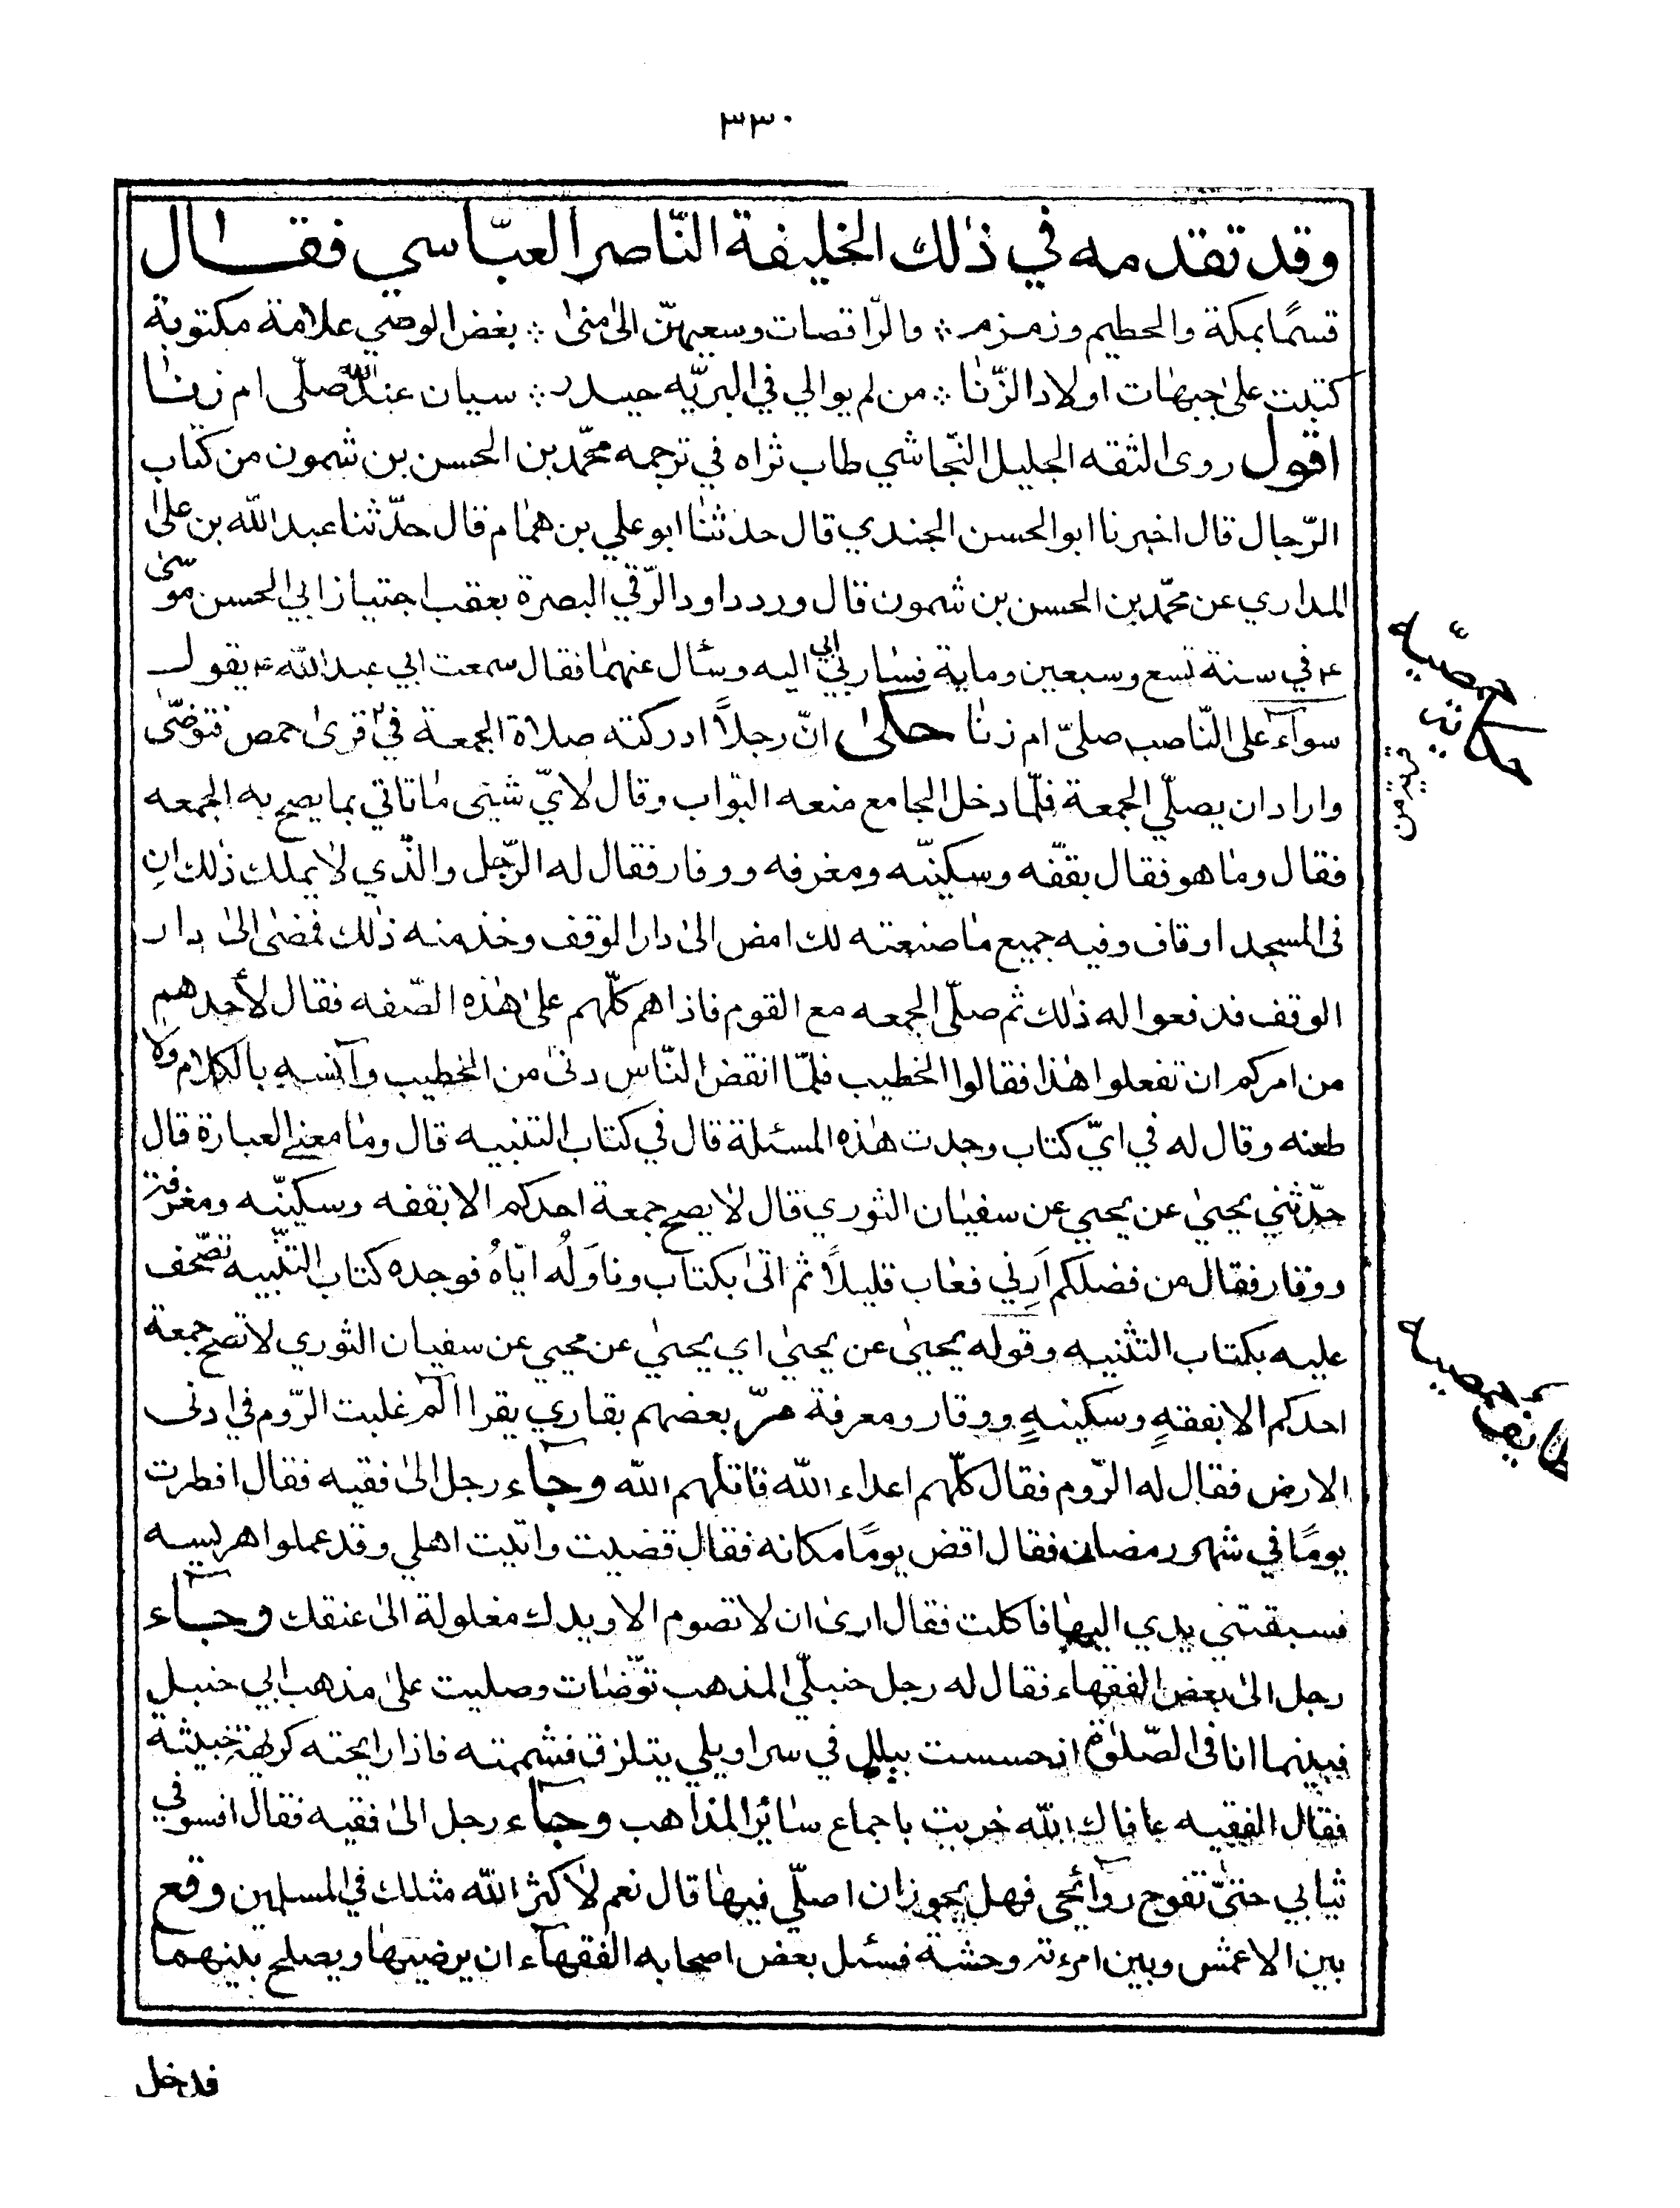 ٣٣٠
وقد تقدمه في ذلك الخليفة النّاصر العبّاسي فقال
قسمًا بمكة والحطيم وزمزم ∴ والرّاقصات وسعيهنّ الى منى ∴ بغض الوصي علامة مكتوبة
كتبت على جبهات اولاد الزّنا ∴ من لم يوالي في البريّه حيدر ∴ سيان عند اللّه صلّى ام زنا
اقول روى الثقه الجليل النّجاشي طاب ثراه في ترجمه محمّد بن الحسن بن شمون من كتاب
الرّجال قال اخبرنا ابو الحسن الجندي قال حدثنا ابو علي بن همام قال حدّثنا عبد اللّه بن على
المداري عن محمّد بن الحسن بن شمون قال ورد داود الرّقي البصرة بعقب اجتياز ابي الحسن موسى
ع في سنة تسع وسبعين وماية فسار بي ابي اليه وسأل عنهما فقال سمعت ابي عبد اللّه ع يقول
سوآء على النّاصب صلىّ ام زنا حكى انّ رجلاً ادركته صلاة الجمعة في قرى حمص فتوضّى
واراد ان يصلّي الجمعة فلمّا دخل الجامع منعه البوّاب وقال لايّ شيئى ما تاتي بما يصح به الجمعه
فقال وما هو فقال بقفّه وسكينّه ومغرفه ووفار فقال له الرّجل والذّي لا يملك ذلك ان
فى المسجد اوقاف وفيه جميع ما صنعته لك امض الى دار الوقف وخذ منه ذلك فمضى الى دار
الوقف فدفعوا له ذلك ثم صلّى الجمعه مع القوم فاذا هم كلّهم على هذه الصّفه فقال لأحدهم
من امركم ان تفعلوا هذا فقالوا الخطيب فلمّا انقض النّاس دنى من الخطيب وآنسه بالكلام ولا
طعنه وقال له في ايّ كتاب وجدت هذه المسئلة قال في كتاب التنبيه قال وما معنى العبارة قال
حدّثني يحيى عن يحيي عن سفيان الثوري قال لا يصح جمعة احدكم الا بقفه وسكينّه ومغرفة
ووقار فقال من فضلكم اَرِني فغاب قليلاً ثم اتى بكتاب وناوَلُه ايّاهُ فوجده كتاب التنّبيه تصّحف
عليه بكتاب التثنيه وقوله يحيى عن يحيى اي يحيى عن محيي عن سفيان الثوري لا تصح جمعة
احدكم الا بفقهٍ وسكينهٍ ووقار ومعرفة مرّ بعضهم بقاري يقرا الٓم غلبت الرّوم في ادنى
الارض فقال له الرّوم فقال كلّهم اعداء اللّه قاتلهم اللّه وجآء رجل الى فقيه فقال افطرت
يومًا في شهر رمضان فقال اقض يومًا مكانه فقال قضيت واتيت اهلي وقد عملوا هريسه
فسبقتني يدي اليها فاكلت فقال ارى ان لا تصوم الا ويدك مغلولة الى عنقك وجآء
رجل الى بعض الفقهاء فقال له رجل حنبلّي المذهب توّضات وصليت على مذهب ابي حنبل
فبينما انا فى الصّلوة احسست ببلل في سراويلي يتلزق فشممته فاذا رايحته كريهة خبيثة
فقال الفقيه عافاك اللّه خريت باجماع سائر المذاهب وجآء رجل الى فقيه فقال افسو في
ثيابي حتىّ تفوح روآئحى فهل يجوز ان اصلّي فيها قال نعم لا كثر اللّه مثلك في المسلمين وقع
بين الاعمش وبين امرءته وحشة فسئل بعض اصحابه الفقهآء ان يرضيها ويصلح بينهما
فدخل